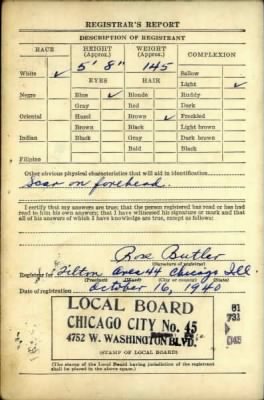 REGISTRAR'S REPORT
DESCRIPTION OF REGISTRANT
RACE HEIGHT (Approx.) WEIGHT (Approx.) COMPLEXION
5' 8" 145 Sallow
White ✓ EYES HAIR Light ✓
Negro Blue ✓ Blonde Ruddy
Gray Red Dark
Oriental Hazel Brown ✓ Freckled
Brown Black Light brown
Indian Black Gray Dark brown
Bald Black
Filipino
Other obvious physical characteristics that will aid in identification
Scar on forehead.
I certify that my answers are true; that the person registered has read or has had
read to him his own answers; that I have witnessed his signature or mark and that
all of his answers of which I have knowledge are true, except as follows:
Rose Butler
(Signature of registrar)
Registrar for Tilton Area 44 Chicago Ill.
(Precinct) (City or county) (State)
Date of registration October 16, 1940
LOCAL BOARD
CHICAGO CITY No. 45
4752 W. WASHINGTON BLVD.
(STAMP OF LOCAL BOARD)
(The stamp of the Local Board having jurisdiction of the registrant
shall be placed in the above space.)